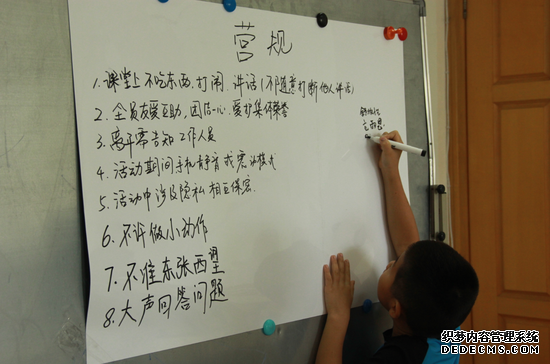 营规
1.课堂上不吃东西、打闹、讲话(不随意打断他人讲话)
2.全员友爱互助,团结一心,爱护集体荣誉
3.离开需告知工作人员
4.活动期间手机静音或震动模式
5.活动中涉及隐私相互保密.
6.不许做小动作
7.不准东张西望
8.大声回答问题
织梦内容管理系统
DEDECMS.COM